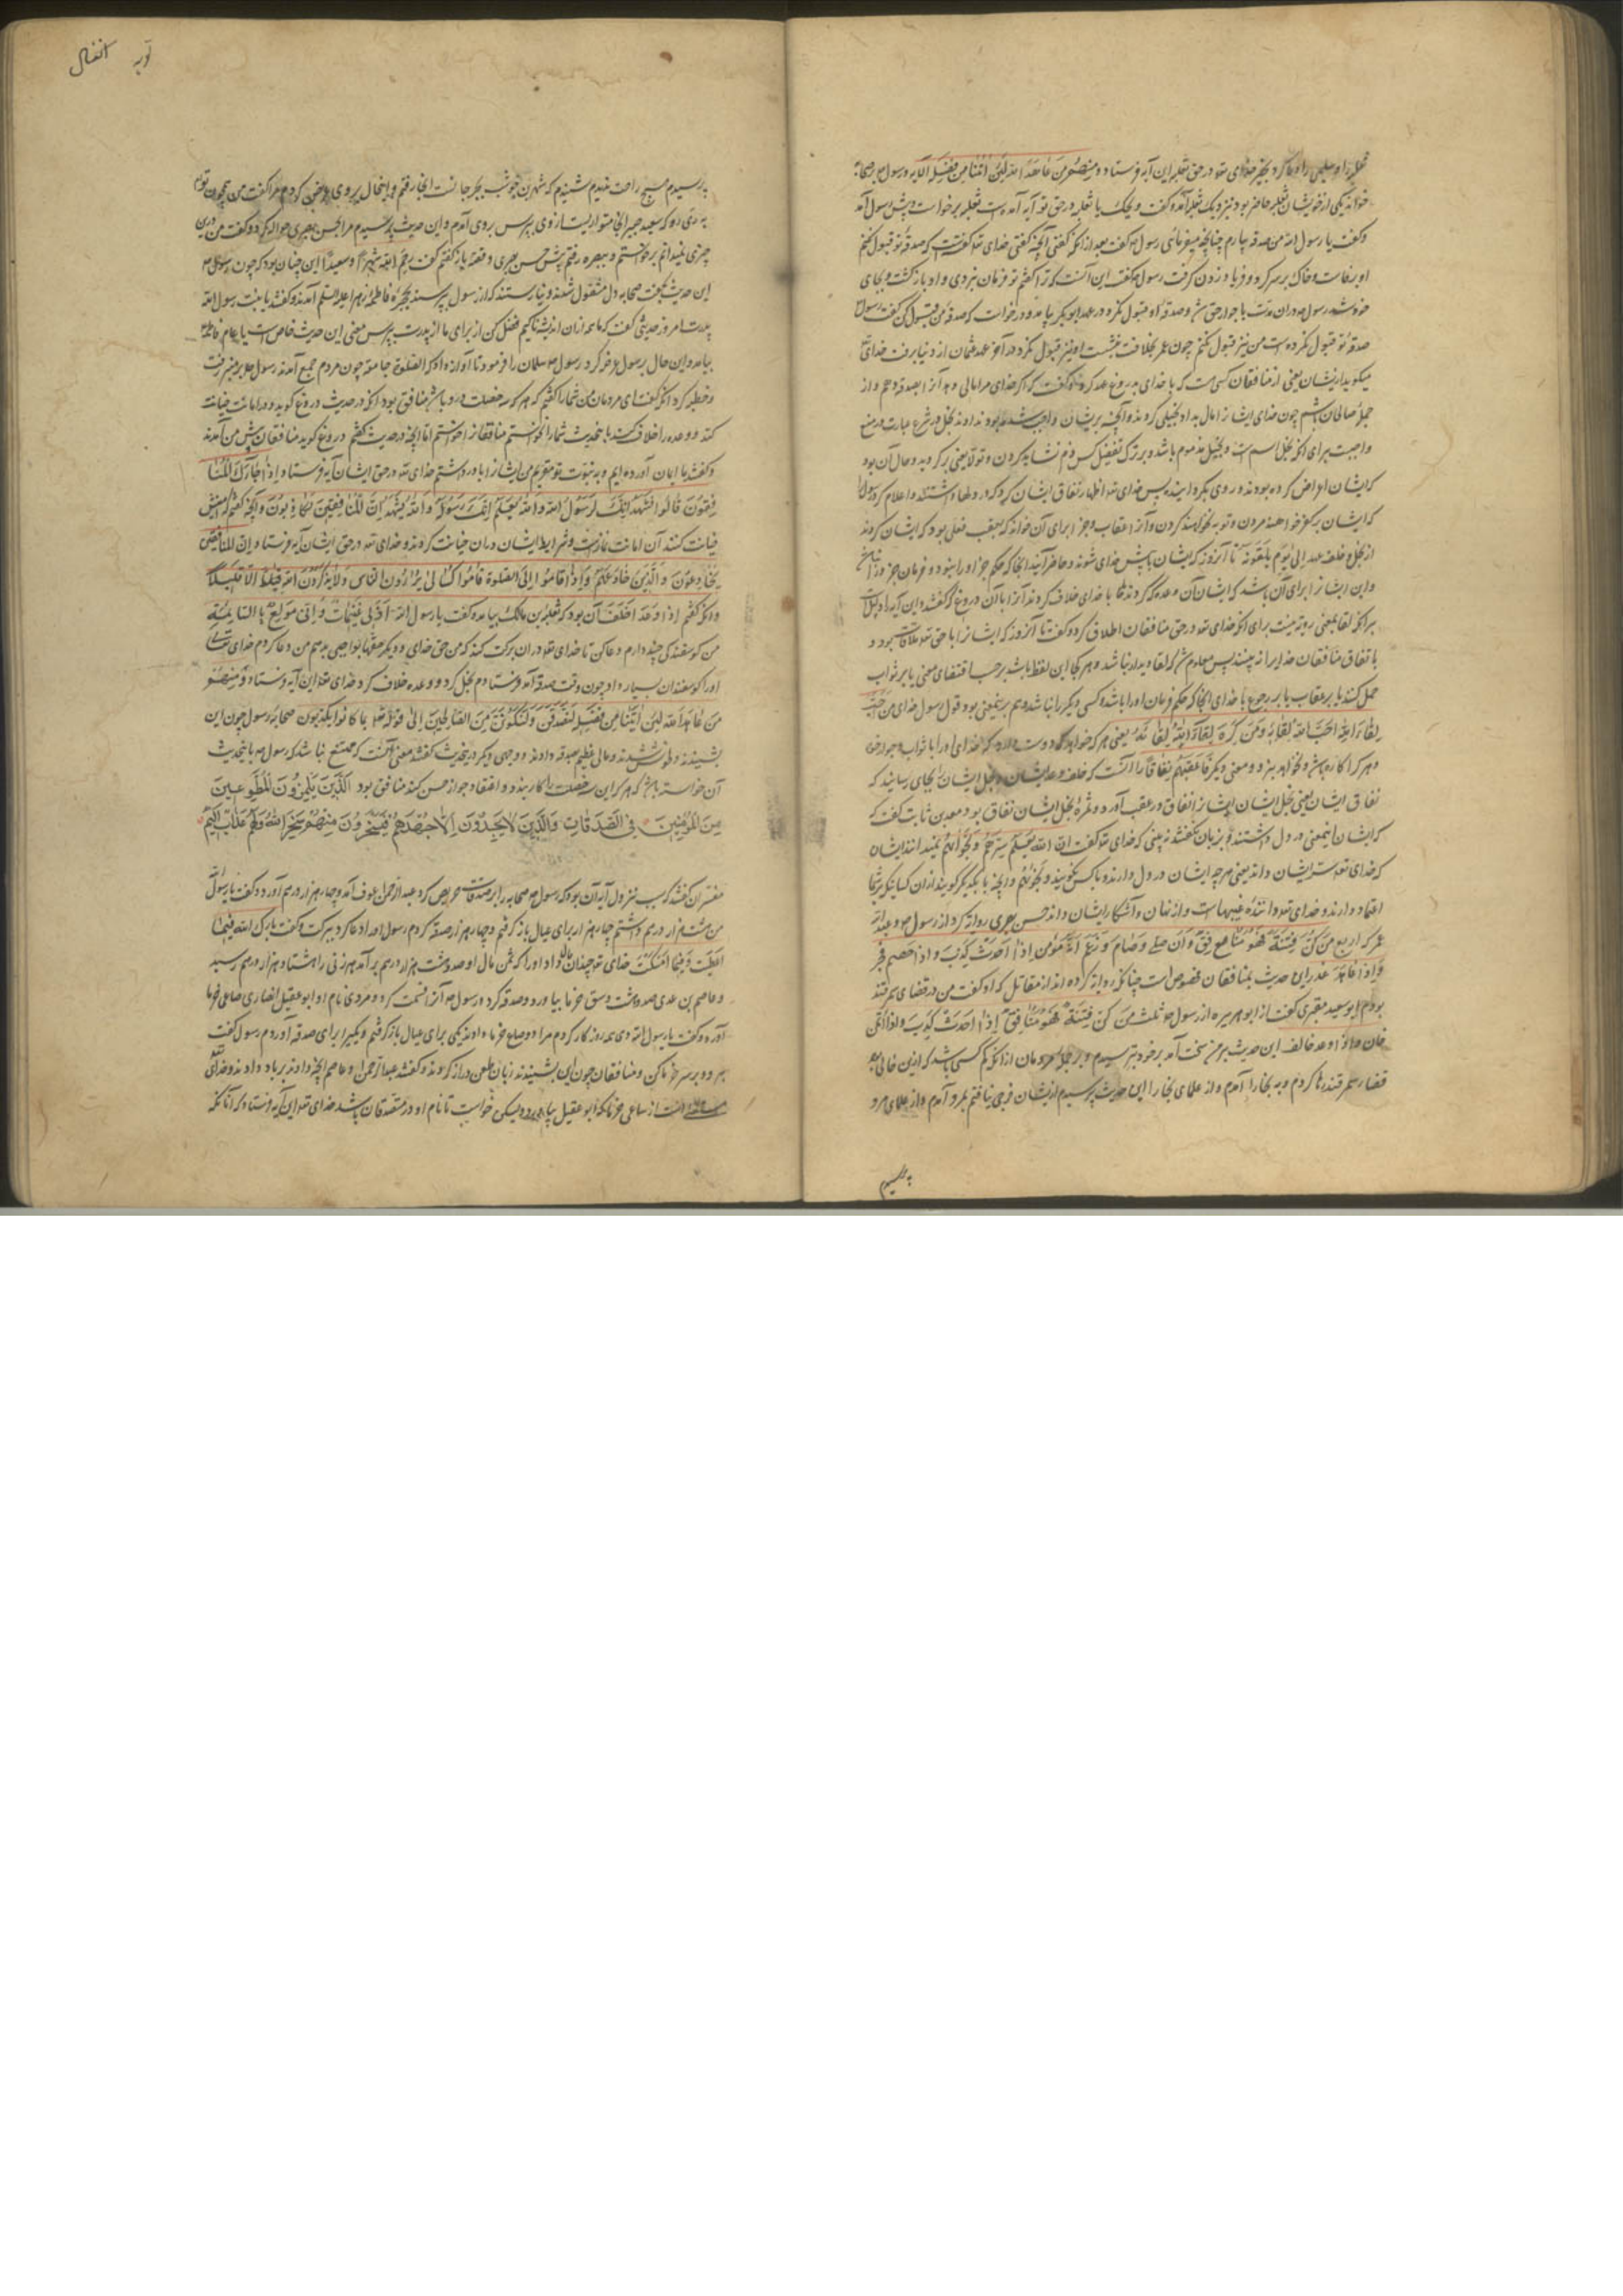 خواند یکی از خویشان ثعلبه حاضر بود نیز دیک ثعلبه آمد و گفت ویحک یا ثعلبه در حق تو آیه آمده است ثعلبه برخواست و پیش رسول آمد
و گفت یا رسول الله من صدقه بیارم چنانچه میفرمائی رسول گفت بعد از آنکه گفتی آنچه گفتی خدای تعالی گفته است که صدقه تو قبول نکنم
او برخاست و خاک بر سر کرد و فریاد زدن گرفت رسول گفت این آنست که ترا گفتم تو فرمان نبردی و او بازگشت و بجای
خود شد و رسول در آن مدت با جوار حق شد و صدقه او قبول نکرد و در عهد ابوبکر بیامد و درخواست که صدقه من قبول کن گفت رسول
صدقه تو قبول نکرده است من نیز قبول نکنم چون عمر بخلافت بنشست او نیز قبول نکرد و در آخر عهد عثمان از دنیا برفت خدای
میگوید از ایشان یعنی از منافقان کسی است که با خدای به روغ عهد کرده و گفت که اگر خدای مرا مالی دهد از آن صدقه دهم و از
جمله صالحان باشم چون خدای ایشان را مال بداد بخیلی کردند و آنچه بر ایشان واجب شده بود ندادند بخل در شرع عبارت در منع
واجبت برای آنکه بخل اسم است و بخیل مذموم باشد و بر ترک تفضل کس ذم نشاید کردن و تولا یعنی بر کردید و حال آن بود
که ایشان اعراض کرده بودند و روی بگردانیده پس خدای تعالی اظهار نفاق ایشان کرد که در دلها داشتند و اعلام کرد رسول را
که ایشان بر کفر خواهند مردن و توبه نخواهند کردن و آنرا عقاب و جزا برای آن خواند که بعقب فعلی بود که ایشان کردند
از بخل و خلف عهد الی یوم یلقونه تا آنروز که ایشان با پیش خدای شوند و حاضر آیند آنجا که حکم جز او را نبود و فرمان جز
و این ایشان را برای آن باشد که ایشان آن وعده که کردند با خدای خلاف کردند آنرا با آن دروغ که گفتند و این آیه دلیل است
بر آنکه لقا بمعنی رویت نیست برای آنکه خدای تعالی در حق منافقان اطلاق کرد و گفت تا آنروز که ایشان را با حق تعالی ملاقات بود و
باتفاق منافقان خدایرا نبینند پس معلوم شد که لقا دیدار نباشد و هر کجا این لفظ باشد بر حسب اقتضای معنی یا بر ثواب
حمل کنند یا بر عقاب یا بر رجوع با خدای آنجا که حکم و فرمان او را باشد و کسی دیگر را نباشد و هم بر این معنی بود قول رسول خدای من احب
لقاء الله احب الله لقاءه و من کره لقاء الله کره لقاءه یعنی هر که خواهد و دوست دارد که خدای او را با ثواب و جوار خود
نفاق ایشان یعنی بخل ایشان ایشان را نفاق در عقب آورد و ثمره بخل ایشان نفاق بود معبدبن ثابت گفت که
که ایشان اینمعنی در دل داشتند و بزبان نگفتند نه بینی که خدای تعالی گفت ان الله یعلم سرهم و نجویهم نمیدانند ایشان
که خدای تعالی سر ایشان داند یعنی هر چه ایشان در دل دارند و با کس نگویند و نجویهم و آنچه با یکدیگر گویند از آن کسانیکه بر ایشان
اعتماد دارند و خدای تعالی داننده غیبهاست و از نهان و آشکار ایشان داند حسن بصری روایت کرد از رسول و عبدالله
عمر که اربع من کن فیه فهو منافق و ان صلی و صام و زعم انه مومن اذا حدث کذب و اذا خصم فجر
و اذا عاهد غدر این حدیث بمنافقان مخصوص است چنانکه روایت کرده اند از مقاتل که او گفت من در قضای سمرقند
بودم ابوسعید مقبری گفت از ابوهریره از رسول ثلث من کن فیه فهو منافق اذا حدث کذب و اذا ائتمن
خان و اذا وعد خالف این حدیث بر من سخت آمد بر خود بترسیدم و بر جمله مردمان از آنکه کم کسی باشد که ازین خالی بود
قضا سمرقند رها کردم و به بخارا آمدم و از علمای بخارا این حدیث پرسیدم از ایشان فرجی نیافتم بمرو آمدم و از علمای مرو
پرسیدم
توبه انفال
پرسیدم هیچ راحت ندیدم شنیدم که شهربن حوشب بجرجانست آنجا رفتم و این حال بر وی عرض کردم مرا گفت من همچون توام
به ری رو که سعید جبیر آنجا متواریست از وی بپرس بری آمدم و این حدیث پرسیدم مرا بحسن بصری حواله کرد و گفت من درین
چیزی نمیدانم برخواستم و ببصره رفتم پیش حسن بصری و قصه بازگفتم گفت رحم الله شهرا و سعیدا این چنان بود که چون رسول
این حدیث بگفت صحابه دل مشغول شدند و نیارستند که از رسول بپرسند بحجره فاطمه زهرا علیها السلم آمدند و گفتند یا بنت رسول الله
پدرت امروز حدیثی گفت که ما همه از آن اندیشناکیم فضل کن از برای ما از پدرت بپرس معنی این حدیث خاص است یا عام فاطمه
بیامد و این حال بر رسول عرض کرد رسول سلمان را فرمود تا آواز داد که الصلوة جامعة چون مردم جمع آمدند رسول بر منبر رفت
و خطبه کرد آنگه گفت ای مردمان من شما را گفتم که هر که سه خصلت در او باشد منافق بود آنکه در حدیث دروغ گوید و در امانت خیانت
کند و وعده را خلاف کند باین حدیث شما را نخواستم منافقان را خواستم اما آنچه در حدیث گفتم دروغ گوید منافقان پیش من آمدند
و گفتند ما ایمان آورده ایم و به نبوت تو مقریم من ایشان را باور داشتم خدای تعالی در حق ایشان آیه فرستاد اذا جاءک المنا
فقون قالوا نشهد انک لرسول الله و الله یعلم انک لرسوله و الله یشهد ان المنافقین لکاذبون و آنچه گفتم
خیانت کنند آن امانت نمازست و شرایط ایشان در آن خیانت کردند و خدای تعالی در حق ایشان آیه فرستاد ان المنافقین
یخادعون الله و هو خادعهم و اذا قاموا الی الصلوة قاموا کسالی یراءون الناس و لا یذکرون الله الا قلیلا
و آنکه گفتم اذا وعد اخلف آن بود که ثعلبه بن مالک بیامد و گفت یا رسول الله
من گوسفندکی چند دارم دعا کن تا خدای تعالی در آن برکت کند که من حق خدای و دیگر حقها بواجبی بدهم من دعا کردم خدای تعالی
او را گوسفندان بسیار داد چون وقت صدقه آمد فرستادم بخل کرد و وعده خلاف کرد خدای تعالی این آیه فرستاد و منهم
من عاهد الله لئن اتینا من فضله لنصدقن و لنکونن من الصالحین الی قوله تعالی بما کانوا یکذبون صحابه رسول چون این
بشنیدند دلخوش شدند و مالی عظیم صدقه دادند و وجهی دیگر درین حدیث گفتند معنی آنست که ممتنع نباشد که رسول باین حدیث
آن خواسته باشد که هر که این سه خصلت را کار بندد و اعتقاد جواز حسن کند منافق بود الذین یلمزون المطوعین
من المؤمنین فی الصدقات والذین لا یجدون الا جهدهم فیسخرون منهم سخر الله منهم ولهم عذاب الیم
مفسران گفتند که سبب نزول آیه آن بود که رسول صحابه را بر صدقات تحریص کرد عبدالرحمن عوف آمد و چهار هزار درم آورد و گفت یا رسول الله
من هشت هزار درم داشتم چهار هزار برای عیال باز گرفتم و چهار هزار صدقه کردم رسول او را دعا کرد ببرکت و گفت بارک الله فیما
اعطیت و فیما امسکت خدای تعالی چندان مال داد او را که ثمن مال او صد و شصت هزار درم برآمد هر زنی را هشتاد هزار درم رسید
و عاصم بن عدی صد و شصت وسق خرما بیاورد و صدقه کرد و رسول آنرا قسمت کرد و مردی نام او ابوعقیل انصاری صاعی خرما
آورد و گفت یا رسول الله دی همه روز کار کردم مرا دو صاع خرما دادند یکی برای عیال باز گرفتم و یکی را برای صدقه آوردم رسول گفت
بر سر خرما کن و منافقان چون این بشنیدند زبان طعن دراز کردند و گفتند عبدالرحمن و عاصم آنچه دادند بریا دادند و خدای
از صاعی خرما که ابوعقیل بیاورد ولیکن خواست تا نام او در متصدقان باشد خدای تعالی این آیه فرستاد که آنانکه